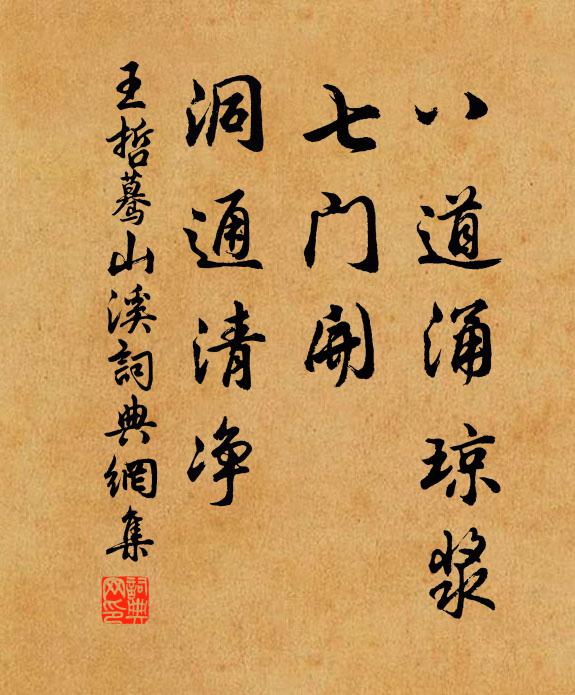 八道涌琼浆
七门开
洞通清净
王哲蓦山溪詞典網集
詞典网印